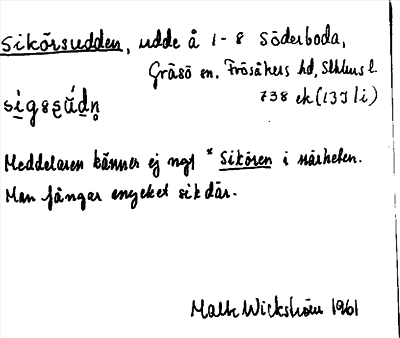 Sikörsudden, udde å 1-8 Söderboda,
Gräsö sn. Frösåkers hd, Sthlms l.
738 ek (13J li)
Meddelaren känner ej ngt *Sikören i närheten.
Man fångar mycket sik där.
Wickström 1961